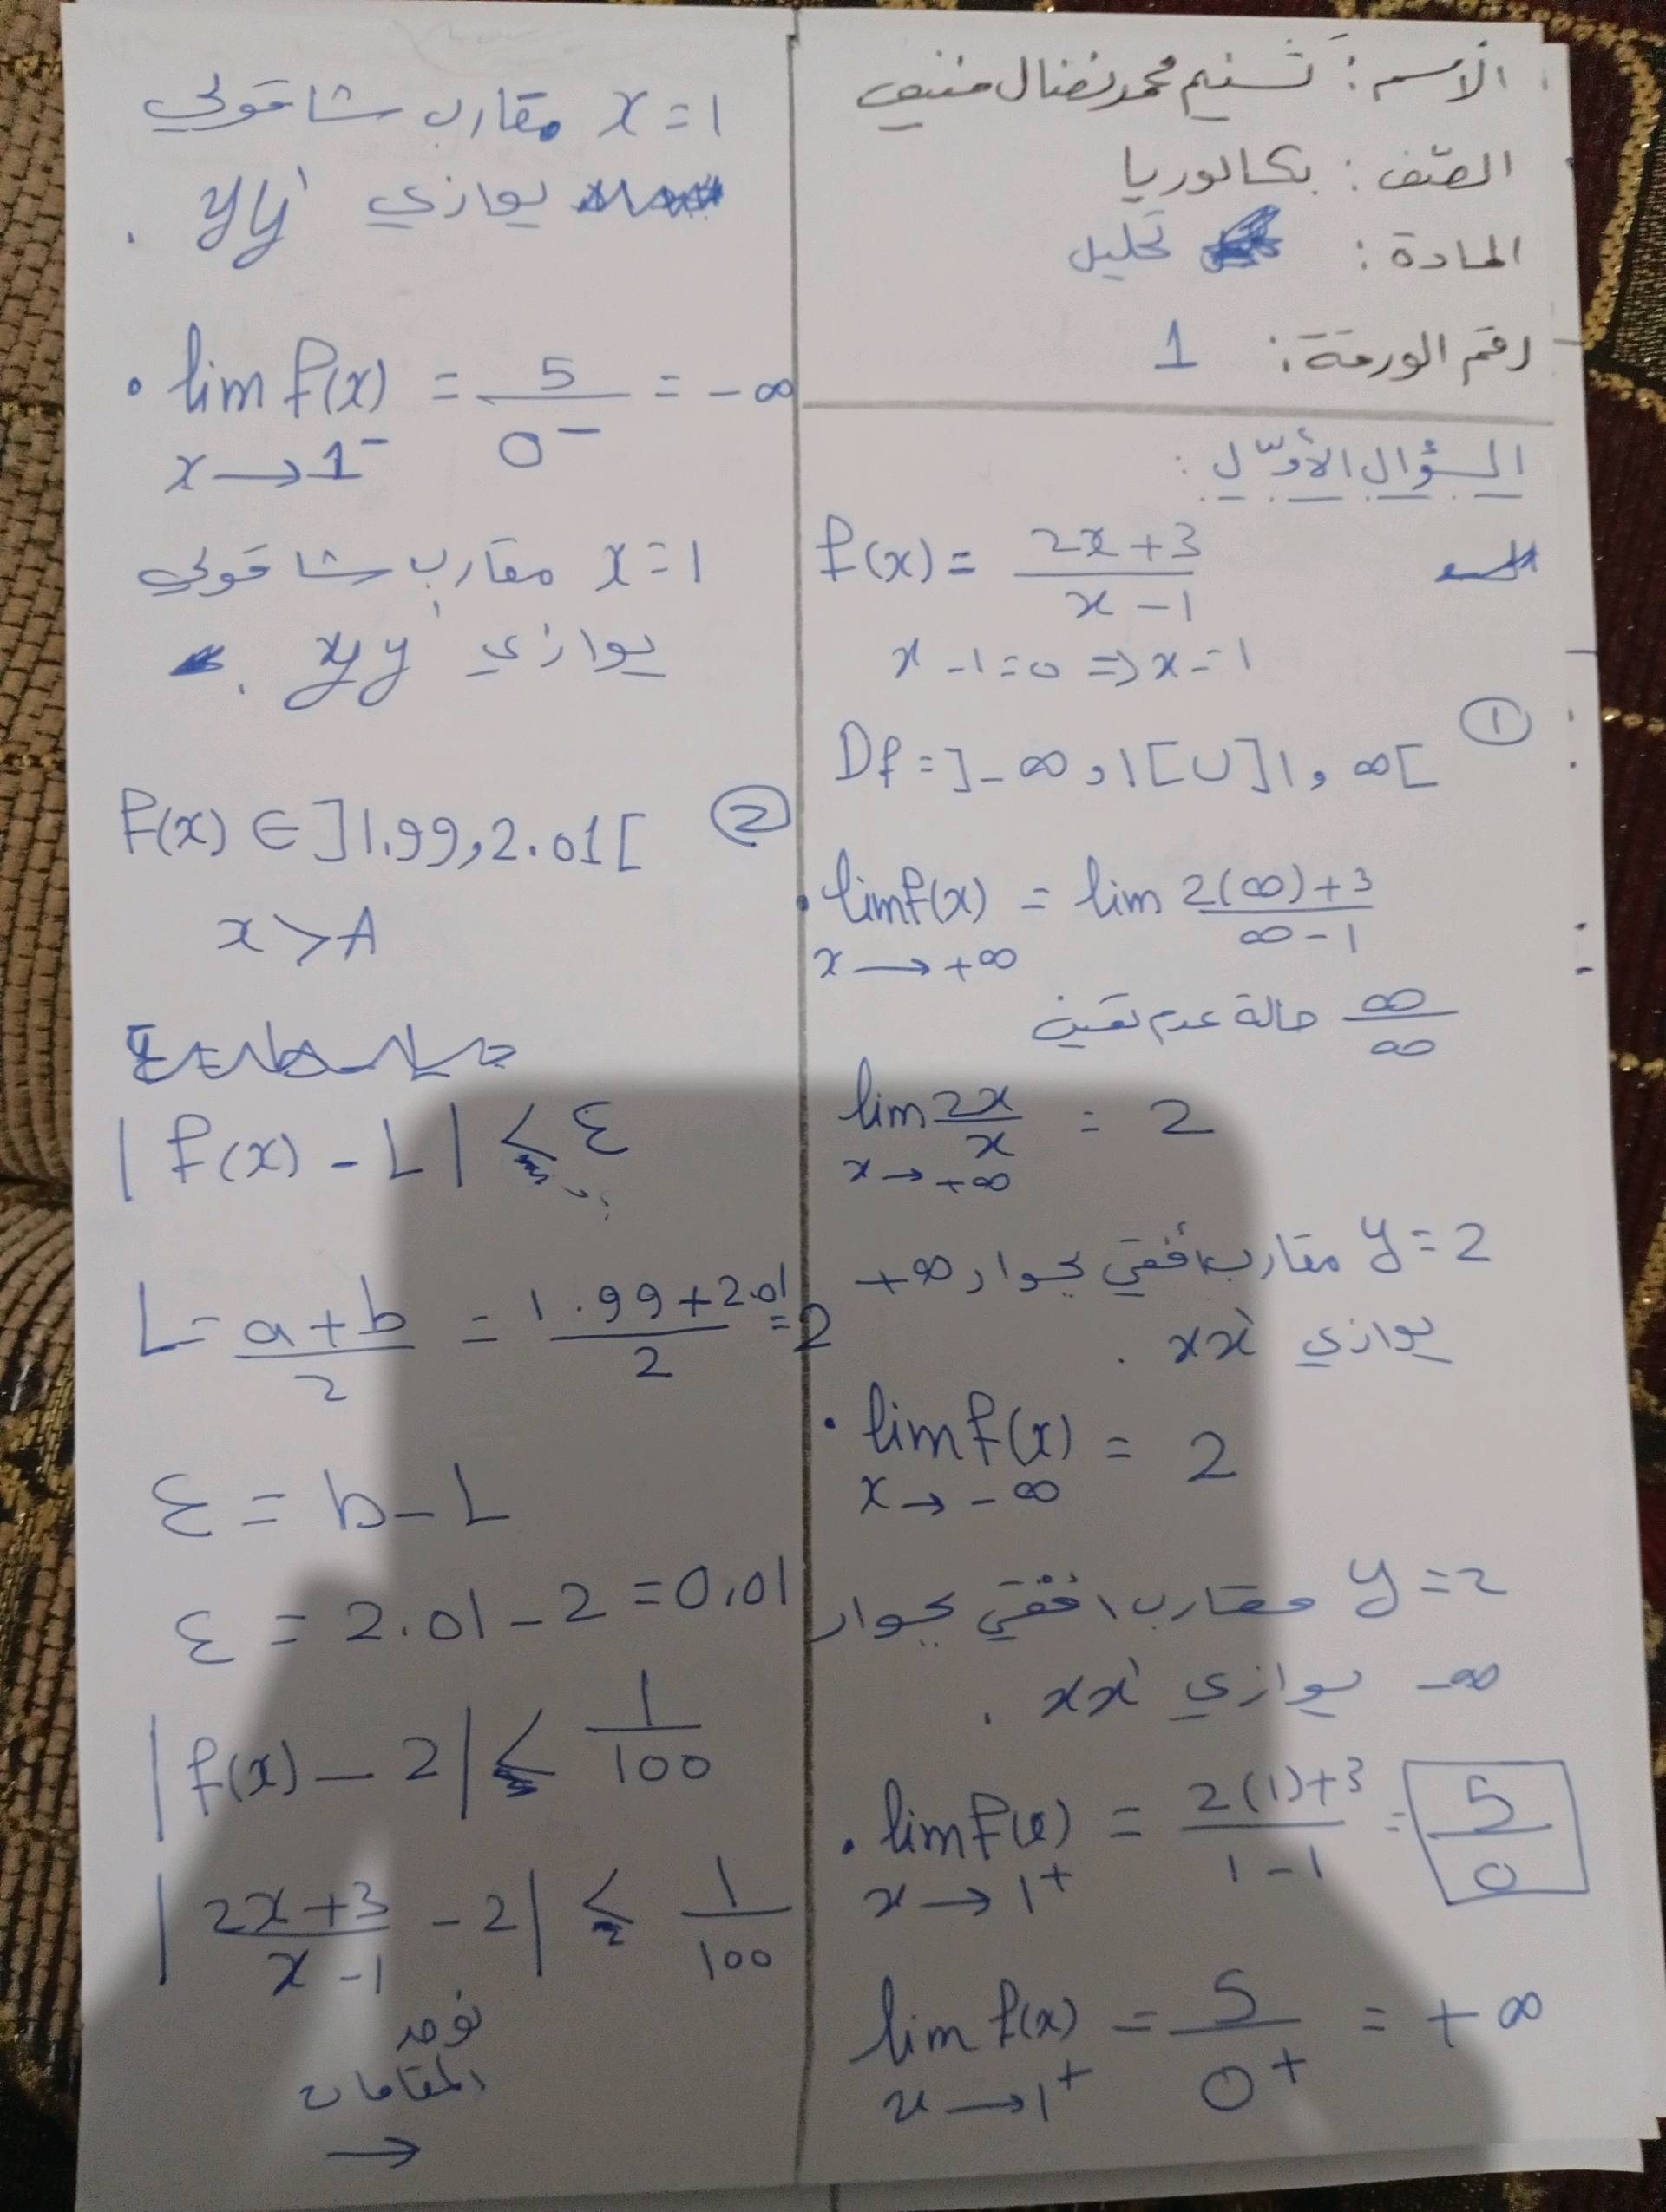 الاسم: تسنيم محمد نضال
الصّف: بكالوريا
المادة: تحليل
رقم الورقة: 1
السؤال الأوّل:
f(x) = (2x+3)/(x-1)
x-1=0 => x=1
① Df = ]-∞, 1[ U ]1, ∞[
• lim f(x) = lim (2(∞)+3)/(∞-1)
x → +∞
∞/∞ حالة عدم تعين
lim 2x/x = 2
x → +∞
y=2 مقارب أفقي بجوار +∞
يوازي xx' .
• lim f(x) = 2
x → -∞
y=2 مقارب افقي بجوار
-∞ يوازي xx' .
• lim f(x) = (2(1)+3)/(1-1) = 5/0
x → 1+
lim f(x) = 5/0+ = +∞
x → 1+
x=1 مقارب شاقولي
يوازي yy' .
• lim f(x) = 5/0- = -∞
x → 1-
x=1 مقارب شاقولي
يوازي yy' .
② f(x) ∈ ]1.99, 2.01[
x > A
|f(x) - L| < ε
L = (a+b)/2 = (1.99+2.01)/2 = 2
ε = b - L
ε = 2.01 - 2 = 0.01
|f(x) - 2| < 1/100
|(2x+3)/(x-1) - 2| < 1/100
نوحد
المقامات
→